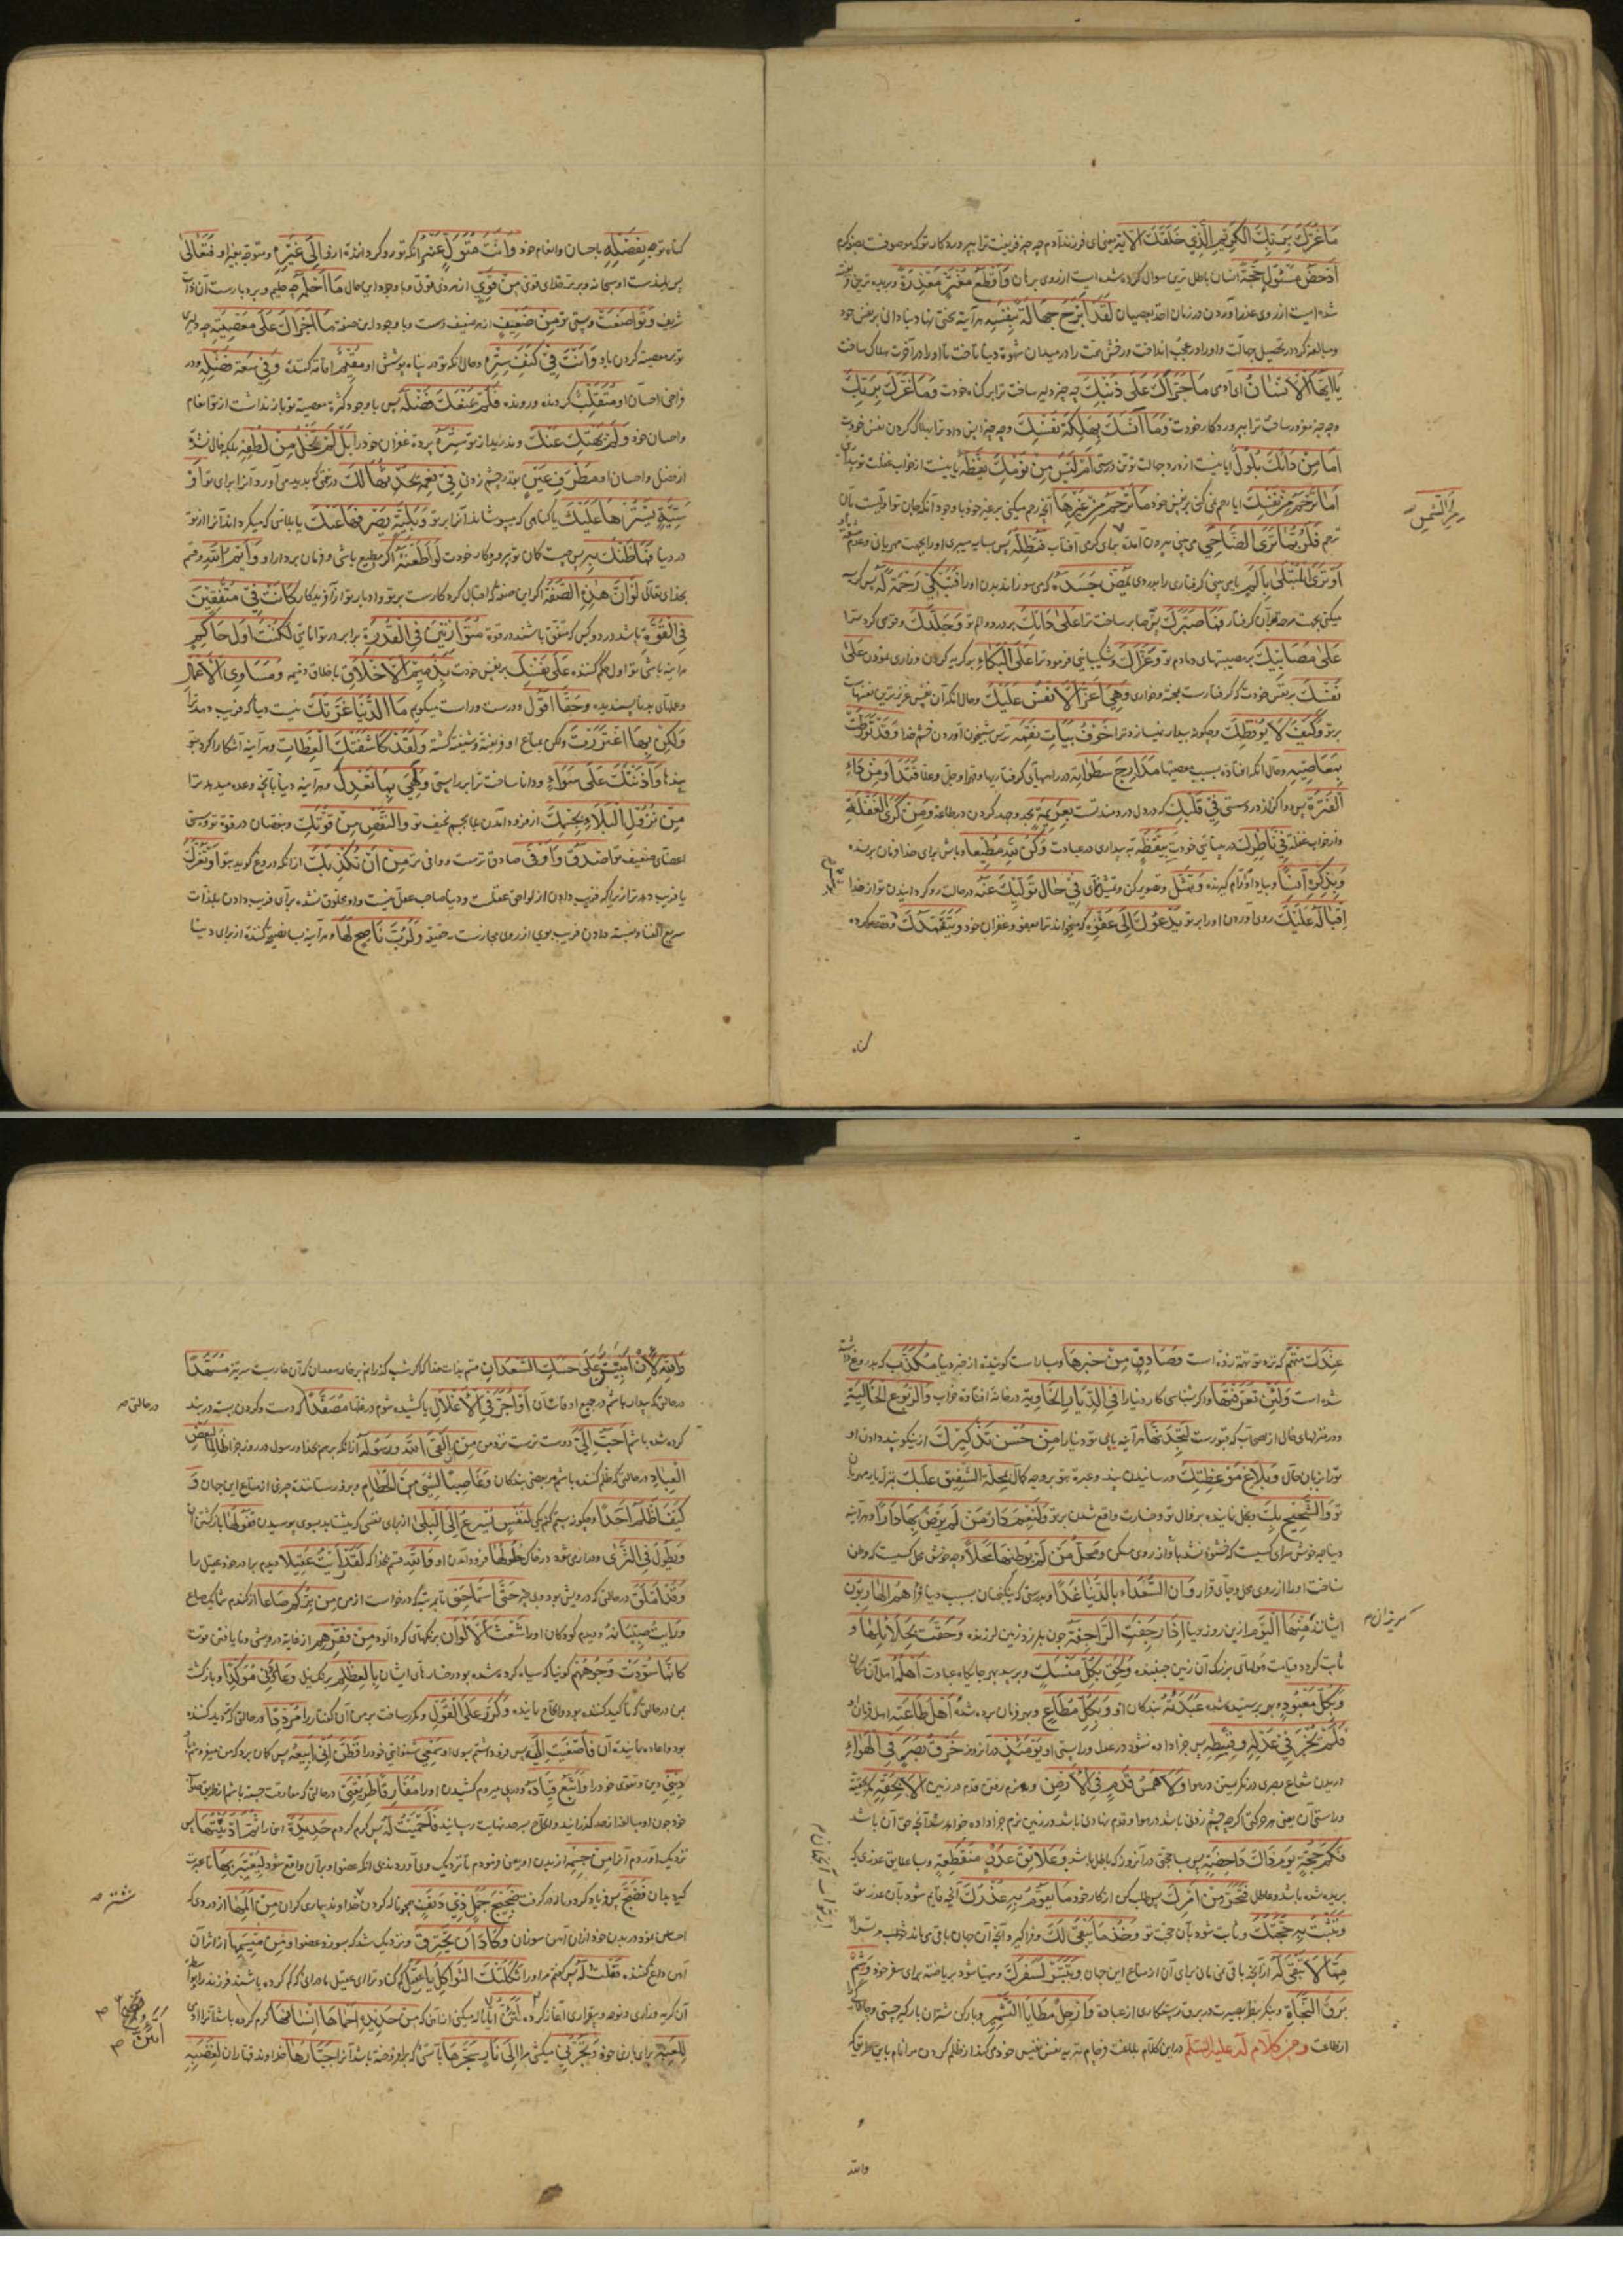 مَا غَرَّكَ بِرَبِّكَ الْكَرِيمِ الَّذِي خَلَقَكَ الاية یعنی ای فرزند آدم چه چیز فریفت ترا بپروردکار تو که موصوفست بصفة کرم
اَدْحَضُ مَسْئُولٍ حُجَّةً انسان باطل ترین سوال کرده شده است از روی برهان وَاَقْطَعُ مُغْتَرٍّ مَعْذِرَةً و بریده ترین
شده است از روی عذر آوردن در زمان اخذ بعصیان لَقَدْ اَبْرَحَ جَهَالَةً بِنَفْسِهِ هر آینه بسختی نهاد بنادانی بر نفس خود
و مبالغه کرد در تحصیل جهالت و او را در عجب انداخت و رخش همت را در میدان شهوة دنیا تاخت تا او را در آخرت هلاک ساخت
يَا اَيُّهَا الْاِنْسَانُ ای آدمی مَا جَرَّاَكَ عَلَى ذَنْبِكَ چه چیز دلیر ساخت ترا بر کناه خودت وَمَا غَرَّكَ بِرَبِّكَ
و چه چیز مغرور ساخت ترا بپروردکار خودت وَمَا اَنَّسَكَ بِهَلَكَةِ نَفْسِكَ و چه چیز انس داد ترا بهلاک کردن نفس خودت
اَمَا مِنْ دَائِكَ بُلُولٌ ایا نیست از درد جهالت تو تن درستی اَمْ لَيْسَ مِنْ نَوْمِكَ يَقَظَةٌ یا نیست از خواب غفلت تو بیداری
اَمَا تَرْحَمُ مِنْ نَفْسِكَ ایا رحم نمی کنی بر نفس خود مَا تَرْحَمُ مِنْ غَيْرِهَا آنچه رحم میکنی بر غیر خود با وجود آنکه جان تو اولیست بآن
ترحم فَلَرُبَّمَا تَرَى الضَّاحِيَ می بینی بیرون آمده برای کرمی آفتاب فَتُظِلُّهُ پس سایه میبری او را بجهت مهربانی
اَوْ تَرَى الْمُبْتَلَى بِاَلَمٍ یا می بینی کرفتاری را بدردی يُمِضُّ جَسَدَهُ که می سوزاند بدن او را فَتَبْكِي رَحْمَةً لَهُ پس کریه
میکنی بجهت مرحمة بر آن کرفتار فَمَا صَبَّرَكَ پس چه چیز صابر ساخت ترا عَلَى دَائِكَ بر درد و الم تو وَجَلَّدَكَ و قوی کرد ترا
عَلَى مَصَابِّكَ بر مصیبتهای دمادم تو وَعَزَّاكَ و شکیبایی فرمود ترا عَلَى الْبُكَاءِ بر کریه کردن و زاری نمودن عَلَى
نَفْسِكَ بر نفس خودت که کرفتارست بمحنت و خواری وَهِيَ اَعَزُّ الْاَنْفُسِ عَلَيْكَ و حال آنکه آن نفس عزیزترین نفسهاست
بر تو وَكَيْفَ لَا يُوقِظُكَ و چکونه بیدار نمیسازد ترا خَوْفُ بَيَاتِ نِقْمَةٍ ترس شبیخون آوردن خشم خدا وَقَدْ تَوَرَّطْتَ
بِمَعَاصِيهِ و حال آنکه افتاده بسبب معصیتها مَدَارِجَ سَطَوَاتِهِ در راههای کرفتاریها و قهر او جل و علا فَتَدَاوَ مِنْ دَاءِ
الْفَتْرَةِ پس دوا کن از درد سستی فِي قَلْبِكَ که در دل دردمند تست بِعَزِيمَةٍ بجد و جهد کردن در طاعت وَمِنْ كَرَى الْغَفْلَةِ
و از خواب غفلة فِي نَاظِرِكَ در بینائی خودت بِيَقَظَةٍ به بیداری در عبادت وَكُنْ لِلّٰهِ مُطِيعًا و باش برای خدا فرمان برنده
وَبِذِكْرِهِ آنِسًا و بیاد او آرام کیرنده وَتَمَثَّلْ و تصویر کن و تمثیل نمای فِي حَالِ تَوَلِّيكَ عَنْهُ در حالت رو کردانیدن تو از خدا
اِقْبَالَهُ عَلَيْكَ روی آوردن او را بر تو يَدْعُوكَ اِلَى عَفْوِهِ که میخواند ترا بعفو و غفران خود وَيَتَغَمَّدُكَ
کناه
کناه تو بِفَضْلِهِ باحسان و انعام خود وَاَنْتَ مُتَوَلٍّ عَنْهُ آنکه تو رو کردانندۀ از او اِلَى غَيْرِهِ و متوجه بغیر او فَتَعَالَى
پس بلندست او سبحانه و برترست خدای قوی مِنْ قَوِيٍّ از هر ذی قوتی و با وجود این حال مَا اَحْلَمَهُ چه حلیم و بردبارست آن ذات
شریف وَتَوَاضَعْتَ و پستی تو مِنْ ضَعِيفٍ از هر ضعیف و پست و با وجود این صفة مَا اَجْرَاَكَ عَلَى مَعْصِيَتِهِ چه دلیری
تو بر معصیة کردن باو وَاَنْتَ فِي كَنَفِ سِتْرِهِ و حال آنکه تو در پناه پوشش او مُقِيمٌ اقامة کننده وَفِي سَعَةِ فَضْلِهِ و در
فراخی احسان او مُتَقَلِّبٌ کردنده و رونده فَلَمْ يَمْنَعْكَ فَضْلَهُ پس با وجود کثرة معصیة تو باز نداشت از تو انعام
و احسان خود وَلَمْ يَهْتِكْ عَنْكَ و ندرید از تو سِتْرَهُ پردۀ غفران خود را بَلْ لَمْ تَخْلُ مِنْ لُطْفِهِ بلکه خالی نشدۀ
از فضل و احسان او مَطْرَفَ عَيْنٍ بقدر چشم زدن فِي نِعْمَةٍ يُحْدِثُهَا لَكَ در نعمتی که پدید می آورد آنرا برای تو اَوْ
سَيِّئَةٍ يَسْتُرُهَا عَلَيْكَ یا کناهی که میپوشاند آنرا بر تو اَوْ بَلِيَّةٍ يَصْرِفُهَا عَنْكَ یا بلایی که میکرداند آنرا از تو
در دنیا فَمَا ظَنُّكَ بِهِ پس چیست کمان تو بپروردکار خودت لَوْ اَطَعْتَهُ اکر مطیع باشی و فرمان بردار او وَاَيْمُ اللّٰهِ و قسم
بخدای تعالی لَوْ اَنَّ هٰذِهِ الصِّفَةَ اکر این صفة که اقبال کردکارست بر تو و ادبار تو از آفریدکار كَانَتْ فِي مُتَّفِقَيْنِ
فِي الْقُوَّةِ باشد در دو کس که متفق باشند در قوة مُتَوَازِيَيْنِ فِي الْقُدْرَةِ برابر در توانایی لَكُنْتَ اَوَّلَ حَاكِمٍ
هر آینه باشی تو اول حکم کننده عَلَى نَفْسِكَ بر نفس خودت بِذَمِيمِ الْاَخْلَاقِ باخلاق ذمیمه وَمَسَاوِي الْاَعْمَالِ
و عملهای بد ناپسندیده وَحَقًّا اَقُولُ و درست و راست میکویم مَا الدُّنْيَا غَرَّتْكَ نیست دنیا که فریب دهد ترا
وَلٰكِنْ بِهَا اغْتَرَرْتَ ولکن بمتاع او فریفته و شیفته کشته وَلَقَدْ كَاشَفَتْكَ الْعِظَاتِ و هر آینه آشکارا کرد بتو
پندها وَآذَنَتْكَ عَلَى سَوَاءٍ و دانا ساخت ترا بر راستی وَلَهِيَ بِمَا تَعِدُكَ و هر آینه دنیا بآنچه وعده میدهد ترا
مِنْ نُزُولِ الْبَلَاءِ بِجِسْمِكَ از فرود آمدن بلا بجسم نحیف تو وَالنَّقْصِ مِنْ قُوَّتِكَ و نقصان در قوة تو و سستی
اعضای ضعیف تو اَصْدَقُ وَاَوْفَى صادق ترست و وافی تر مِنْ اَنْ تَكْذِبَكَ از آنکه دروغ کوید بتو اَوْ تَغُرَّكَ
یا فریب دهد ترا زیرا که فریب دادن از لواحق عقلست و دنیا صاحب عقل نیست و او مخلوق نشده برای فریب دادن بلذات
سریع الفنا و نسبة دادن فریب بوی از روی مجازست نه حقیقة وَلَرُبَّ نَاصِحٍ لَهَا و هر آینه بسا نصیحة کننده از برای دنیا
عِنْدَكَ مُتَّهَمٌ که نزد تو تهمة زده است وَصَادِقٍ مِنْ خَبَرِهَا و بسا راست کوینده از خبر دنیا مُكَذَّبٌ که بدروغ
شده است وَلَئِنْ تَعَرَّفْتَهَا و اکر شناسی کار دنیا را فِي الدِّيَارِ الْخَاوِيَةِ در خانه افتاده خراب وَالرُّبُوعِ الْخَالِيَةِ
و در منزلهای خالی از صحاب که قبورست لَتَجِدَنَّهَا هر آینه یابی تو دنیا را مِنْ حُسْنِ تَذْكِيرِكَ از نیکو پند دادن او
تو را بزبان حال وَبَلَاغِ مَوْعِظَتِكَ و رسانیدن پند و عبرة بتو بر وجه کمال بِمَحَلَّةِ الشَّفِيقِ عَلَيْكَ بمنزله یار مهربان
تو وَالشَّحِيحِ بِكَ و بخیل نماینده بر فعال تو و خسارت واقع شدن بر تو وَلَنِعْمَ دَارُ مَنْ لَمْ يَرْضَ بِهَا دَارًا و هر آینه
دنیا چه خوش سرای کسیست که خشنود نشد باو از روی مسکن وَمَحَلُّ مَنْ لَمْ يُوَطِّنْهَا مَحَلًّا و چه خوش محل کسیست که وطن
نساخت او را از روی محل و جای قرار وَاِنَّ السُّعَدَاءَ بِالدُّنْيَا غَدًا و بدرستی که نیکبختان بسبب دنیا فردا هُمُ الْهَارِبُونَ
ایشانند مِنْهَا الْيَوْمَ از این روز دنیا اِذَا رَجَفَتِ الرَّاجِفَةُ چون بلرزد زمین لرزنده وَحَقَّتْ بِجَلَائِلِهَا و
ثابت کردد قیامت بهولهای بزرک آن زمین جنبنده وَلَحِقَ بِكُلِّ مَنْسَكٍ و برسد بهر جایکاه عبادت اَهْلُهُ اهل آن مکان
وَبِكُلِّ مَعْبُودٍ و بهر پرستیده شده عَبَدَتُهُ بندکان او وَبِكُلِّ مُطَاعٍ و بهر فرمان برده شده اَهْلُ طَاعَتِهِ اهل فرمان او
فَلَمْ يُجْزَ فِي عَدْلِهِ وَقِسْطِهِ پس جزا داده نشود در عدل و راستی او يَوْمَئِذٍ در آنروز خَرْقُ بَصَرٍ فِي الْهَوَاءِ
دریدن شعاع بصری در نکریستن در هوا وَلَا هَمْسُ قَدَمٍ فِي الْاَرْضِ و نه نرم رفتن قدم در زمین اِلَّا بِحَقِّهِ مکر بحقیقة
و راستی آن یعنی هر حرکتی اکرچه چشم زدنی باشد در هوا و قدم نهادنی باشد در زمین نرم جزا داده خواهد شد آنچه حق آن باشد
فَكَمْ حُجَّةٍ يَوْمَ ذَاكَ دَاحِضَةٌ پس بسا حجتی در آنروز که باطل باشد وَعَلَائِقِ عُذْرٍ مُنْقَطِعَةٌ و بسا علایق عذری که
بریده شده باشد و عاطل فَتَحَرَّ مِنْ اَمْرِكَ پس طلب کن از کار خود مَا يَقُومُ بِهِ عُذْرُكَ آنچه قایم شود بآن عذر تو
وَتَثْبُتُ بِهِ حُجَّتُكَ و ثابت شود بآن حجت تو وَخُذْ مَا يَبْقَى لَكَ و فراکیر آنچه آن جهان باقی می ماند
مِمَّا لَا تَبْقَى لَهُ از آنچه باقی نمی مانی برای آن از متاع این جهان وَتَيَسَّرْ لِسَفَرِكَ و مهیا شو بریاضة برای سفر خود وَشِمْ
بَرْقَ النَّجَاةِ و بنکر بنظر بصیرت در برق رستکاری از عبادة وَارْحَلْ مَطَايَا التَّشْمِيرِ و بار کن شتران بار کیر چستی و چالاکی
از طاعت وَمِنْ كَلَامٍ لَهُ عَلَيْهِ السَّلَام در این کلام بلاغت فرجام تنزیه نفس نفیس خود می کند از ظلم کردن مر انام باین طریق که
والله
وَاللّٰهِ لَاَنْ اَبِيتَ عَلَى حَسَكِ السَّعْدَانِ قسم بذات خدا که اکر شب کذرانم بر خار سعدان که آن خاریست سر تیز مُسَهَّدًا
در حالتی که بیدار باشم در جمیع اوقات آن اَوْ اُجَرَّ فِي الْاَغْلَالِ یا کشیده شوم در غلها مُصَفَّدًا که دست و کردن بسته در بند
کرده شده باشم اَحَبُّ اِلَيَّ دوست ترست نزد من مِنْ اَنْ اَلْقَى اللّٰهَ وَرَسُولَهُ از آنکه برسم بخدا و رسول در روز جزا ظَالِمًا لِبَعْضِ
الْعِبَادِ در حالتی که ظلم کننده باشم مر بعضی بندکان وَغَاصِبًا لِشَيْءٍ مِنَ الْحُطَامِ و بزور ستاننده چیزی از متاع این جهان وَ
كَيْفَ اَظْلِمُ اَحَدًا و چکونه ستم کنم یکی لِنَفْسٍ يُسْرِعُ اِلَى الْبِلَى از برای نفسی که میشتابد بسوی پوسیدن قُفُولُهَا باز کشتن آن
وَيَطُولُ فِي الثَّرَى و دراز می شود در خاک حُلُولُهَا فرود آمدن او وَاللّٰهِ قسم بخدا که لَقَدْ رَاَيْتُ عَقِيلًا دیدم برادر خود عقیل را
وَقَدْ اَمْلَقَ در حالتی که درویش بود و بی چیز حَتَّى اسْتَمَاحَنِي تا بمرتبۀ که درخواست از من مِنْ بُرِّكُمْ صَاعًا از کندم شما یک صاع
وَرَاَيْتُ صِبْيَانَهُ و دیدم کودکان او را شُعْثَ الْاَلْوَانِ برنکهای کرد آلوده مِنْ فَقْرِهِمْ از غایة درویشی و نا یافتن قوت
كَاَنَّمَا سُوِّدَتْ وُجُوهُهُمْ کوئیا که سیاه کرده شده بود رخسارهای ایشان بِالْعِظْلِمِ برنک نیل وَعَاوَدَنِي مُؤَكِّدًا و باز کشت
بمن در حالتی که تاکید کننده بود و الحاح نماینده وَكَرَّرَ عَلَيَّ الْقَوْلَ و مکرر ساخت بر من آن کفتار را مُرَدِّدًا در حالتی که تردید کننده
بود و اعاده نماینده آن فَاَصْغَيْتُ اِلَيْهِ پس فرو داشتم بسوی او سَمْعِي شنوائی خود را فَظَنَّ اَنِّي اَبِيعُهُ پس کمان برد که من میفروشم
دِينِي دین و تقوی خود را وَاَتَّبِعُ قِيَادَهُ و در پی میروم کشیدن او را مُفَارِقًا طَرِيقَتِي در حالتی که مفارقت جسته باشم از طریق
خود چون او مبالغه از حد کذرانید و الحاح بسرحد نهایت رسانید فَاَحْمَيْتُ لَهُ پس کرم کردم حَدِيدَةً آهن را ثُمَّ اَدْنَيْتُهَا پس
نزدیک آوردم آنرا مِنْ جِسْمِهِ از بدن او لِيَعْتَبِرَ بِهَا تا عبرت
کیرد بدان فَضَجَّ پس فریاد کرد و ناله در کرفت ضَجِيجَ ذِي دَنَفٍ همچو ناله کردن خداوند بیماری کران مِنْ اَلَمِهَا از درد که
احساس نمود در بدن خود از آن آهن سوزان وَكَادَ اَنْ يَحْتَرِقَ و نزدیک شد که بسوزد عضو او مِنْ مِيسَمِهَا از اثر آن
آهن داغ کننده فَقُلْتُ لَهُ پس کفتم مر او را ثَكِلَتْكَ الثَّوَاكِلُ يَا عَقِيلُ کم کناد ترا ای عقیل مادرانی که کم کرده باشند فرزند
آن کریه و زاری و نوحه و بیقراری آغاز کرده اَتَئِنُّ آیا ناله میکنی از آهن که مِنْ حَدِيدَةٍ اَحْمَاهَا اِنْسَانُهَا کرم کرده باشد آنرا انسان
لِلَعِبِهِ برای بازی خود وَتَجُرُّنِي و میکشی مرا اِلَى نَارٍ سَجَرَهَا بآتشی که بر افروخته باشد آنرا جَبَّارُهَا خداوند قهار آن لِغَضَبِهِ